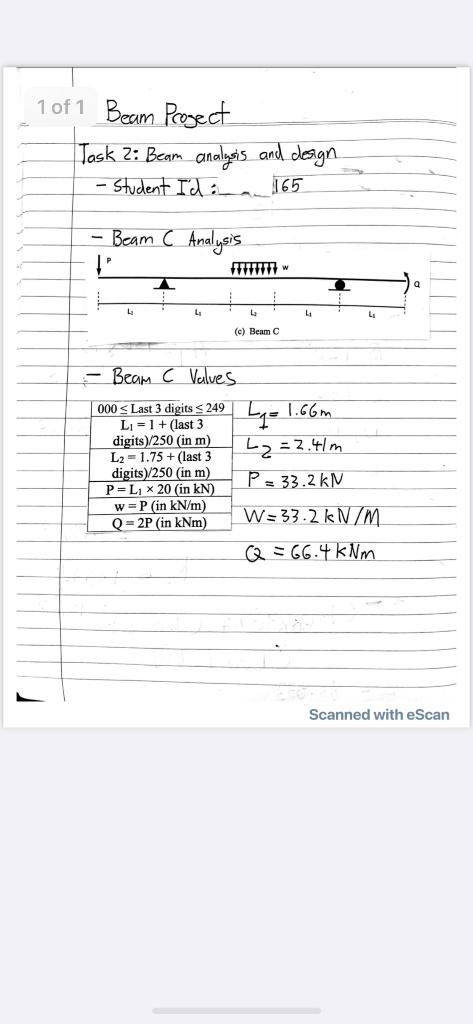 1 of 1
Beam Project
Task 2: Beam analysis and design
- Student I'd : _ _ 165
- Beam C Analysis
P
w
Q
L₁ L₁ L₂ L₁ L₁
(c) Beam C
- Beam C Values
000 ≤ Last 3 digits ≤ 249
L₁ = 1 + (last 3
digits)/250 (in m)
L₂ = 1.75 + (last 3
digits)/250 (in m)
P = L₁ × 20 (in kN)
w = P (in kN/m)
Q = 2P (in kNm)
L₁ = 1.66m
L₂ = 2.41m
P = 33.2kN
W = 33.2 kN/M
Q = 66.4 kNm
Scanned with eScan